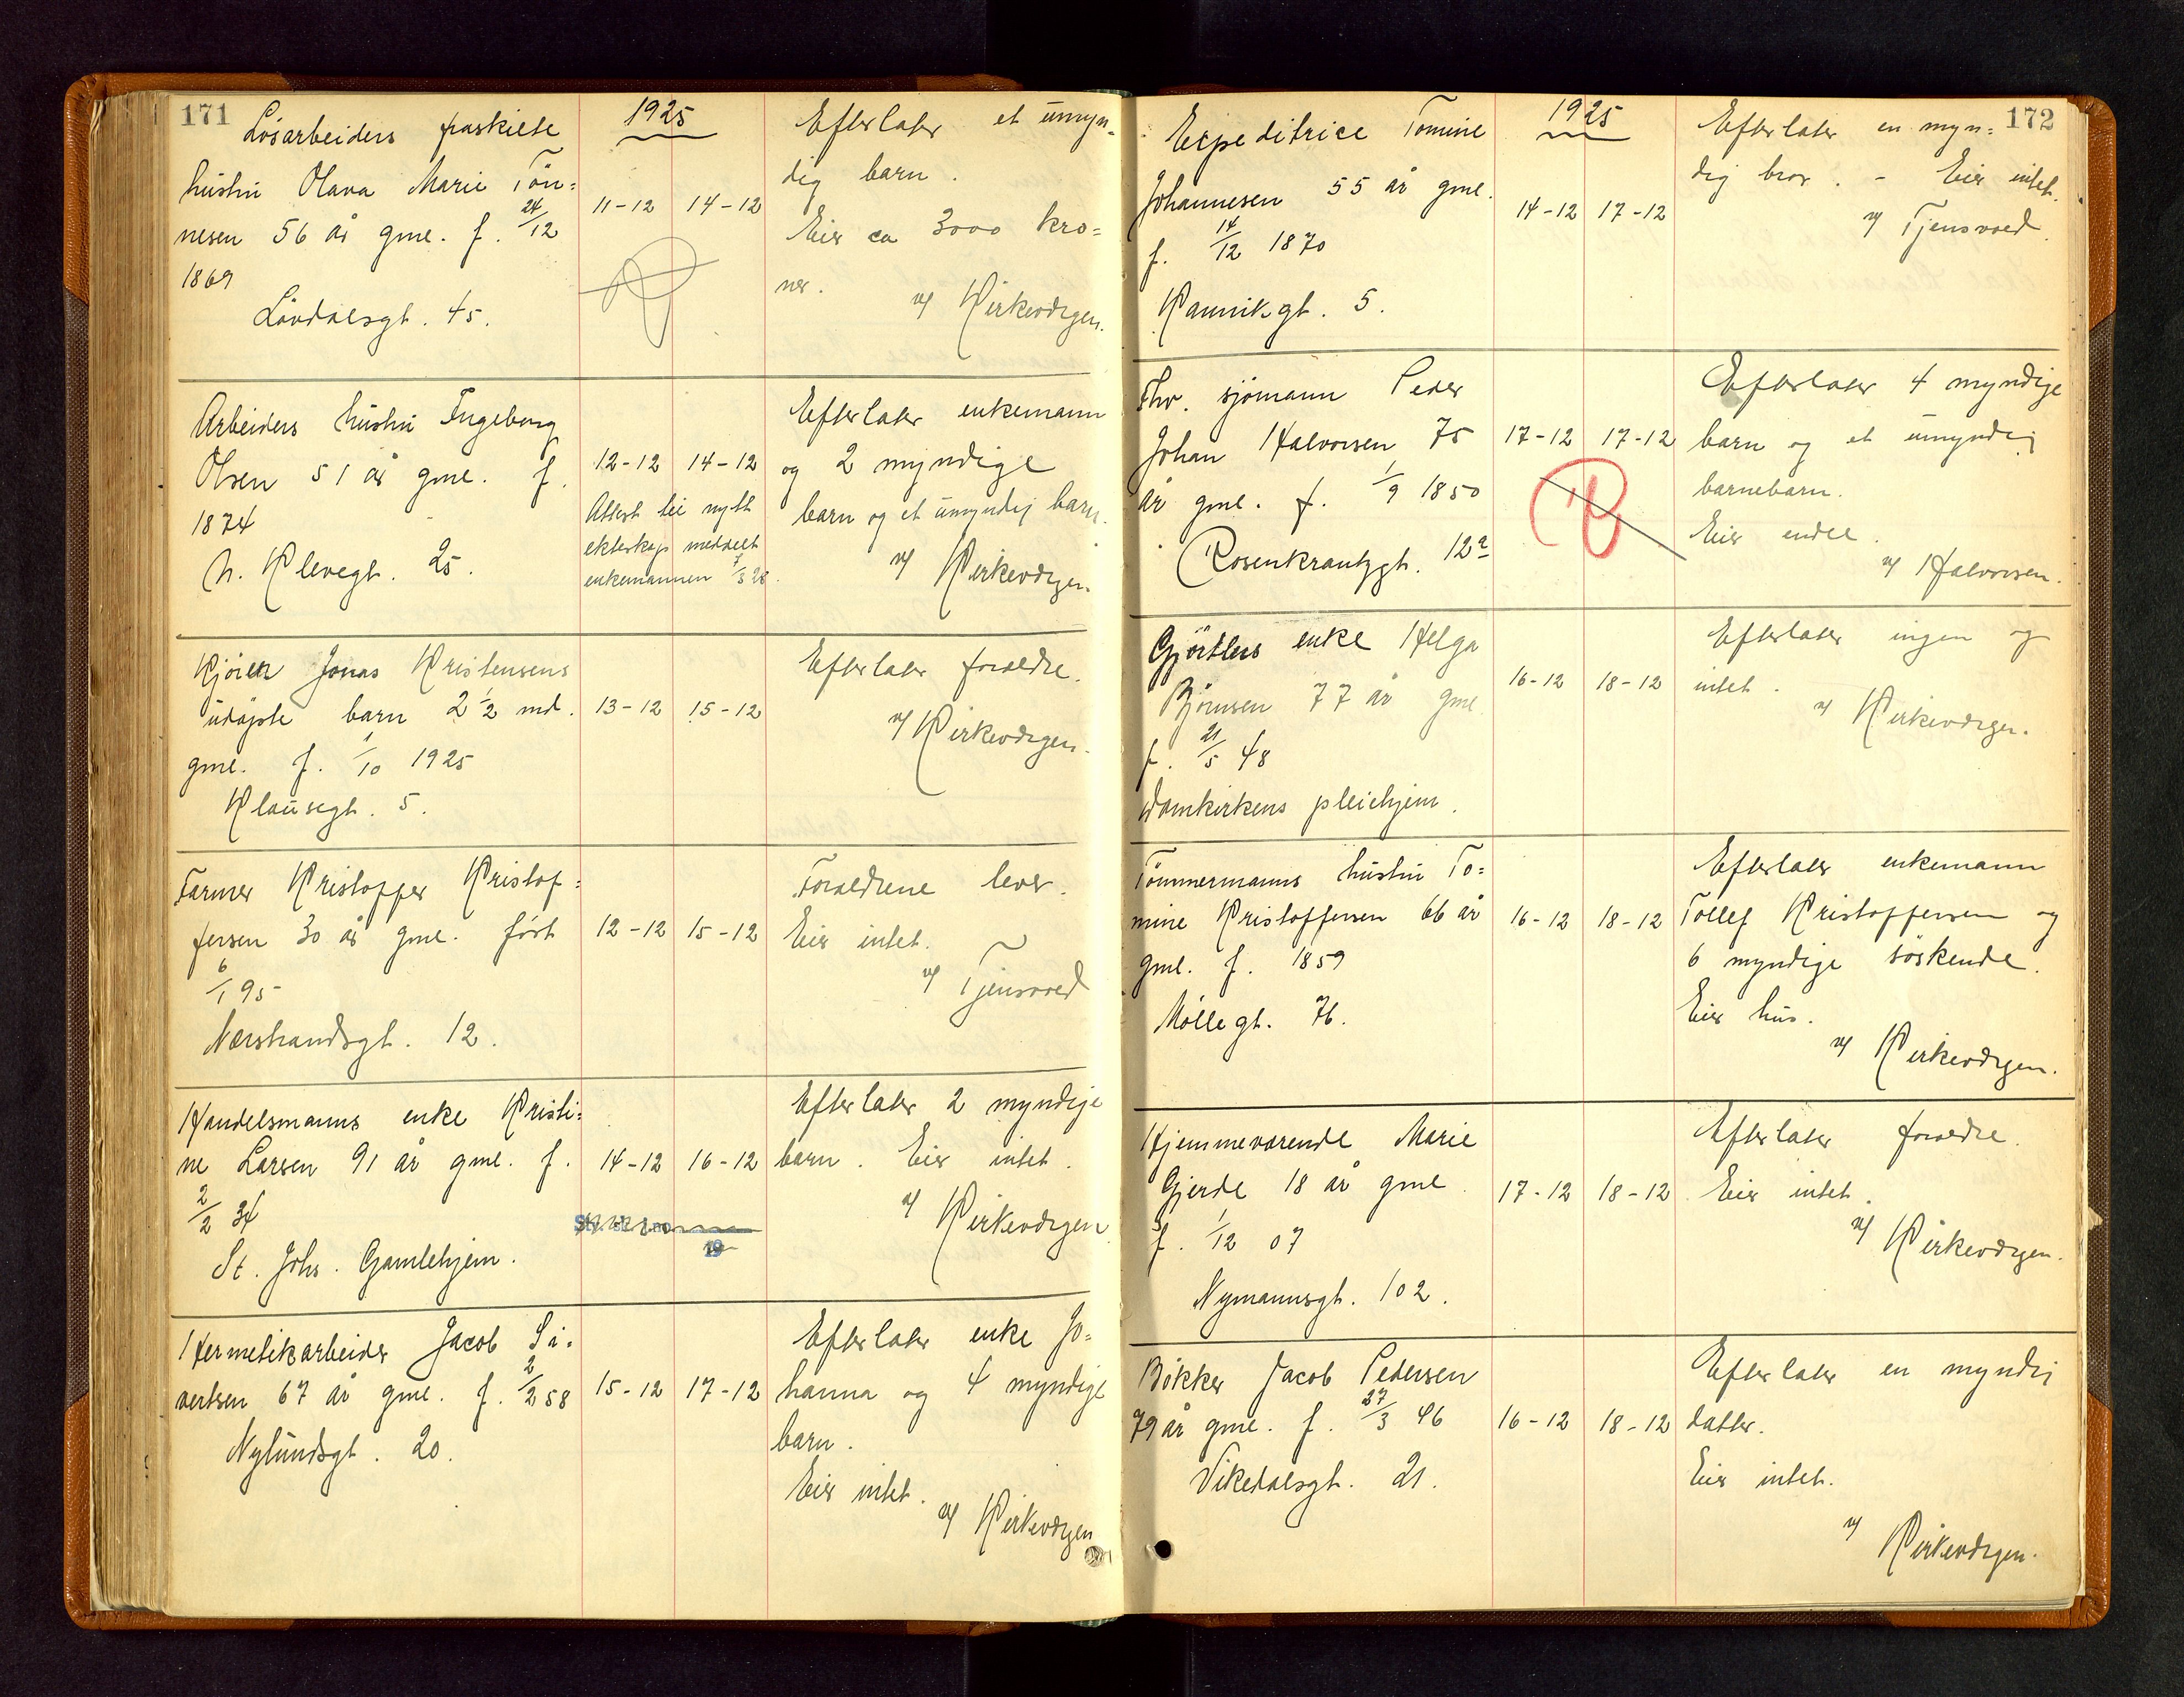 171
1925
Løsarbeiders fraskilte
hustru Olava Marie Tøn=
nesen 56 år gml. f. 24/12
1869
Løvdalsgt. 45.
11-12 14-12
Efterlater et umyn=
dig barn.
Eier ca 3000 kro=
ner.
v/ Kirkevergen.
Arbeiders hustru Ingeborg
Olsen 51 år gml. f.
1874
N. Klevegt. 25.
12-12 14-12
Attest til nytt
ekteskap meddelt
enkemannen 7/3 28.
Efterlater enkemann
og 2 myndige
barn og et umyndig barn.
v/ Kirkevergen.
Kjører Jonas Kristensens
udøpte barn 2 1/2 md.
gml. f. 1/10 1925
Klausegt. 5.
13-12 15-12
Efterlater foreldre.
v/ Kirkevergen.
Farmer Kristoffer Kristof=
fersen 30 år gml. født
6/1 95
Nærstrandsgt. 12.
12-12 15-12
Foreldrene lever.
Eier intet.
v/ Tjensvoed
Handelsmanns enke Kristi=
ne Larsen 91 år gml. f.
2/2 34
St. Johs. Gamlehjem.
14-12 16-12
Efterlater 2 myndige
barn. Eier intet.
v/ Kirkevergen
Hermetikarbeider Jacob Si=
vertsen 67 år gml. f. 2/2 58
Nylundsgt. 20.
15-12 17-12
Efterlater enke Jo=
hanna og 4 myndige
barn.
Eier intet.
v/ Kirkevergen
172
1925
Expeditrice Tomine
Johannesen 55 år gml.
f. 14/12 1870
Kannikgt. 5.
14-12 17-12
Efterlater en myn=
dig bror. - Eier intet.
v/ Tjensvoed.
Fhv. sjømann Peder
Johan Halvorsen 75
år gml. f. 1/9 1850
Rosenkrantzgt. 12a
17-12 17-12
Efterlater 4 myndige
barn og et umyndig
barnebarn.
Eier endel.
v/ Halvorsen.
Gjørtlers enke Helga
Bjørnsen 77 år gml
f. 21/5 48
Domkirkens pleiehjem.
16-12 18-12
Efterlater ingen og
intet.
v/ Kirkevergen.
Tømmermanns hustru To=
mine Kristoffersen 66 år
gml. f. 1859
Møllegt. 76.
16-12 18-12
Efterlater enkemann
Tollef Kristoffersen og
6 myndige søskende.
Eier hus.
v/ Kirkevergen.
Hjemmeværende Marie
Gjerde 18 år gml.
f. 1/12 07
Nymannsgt. 102.
17-12 18-12
Efterlater foreldre.
Eier intet.
v/ Kirkevergen.
Bøkker Jacob Pedersen
79 år gml. f. 27/3 46
Vikedalsgt. 21.
16-12 18-12
Efterlater en myndig
datter.
Eier intet.
v/ Kirkevergen.